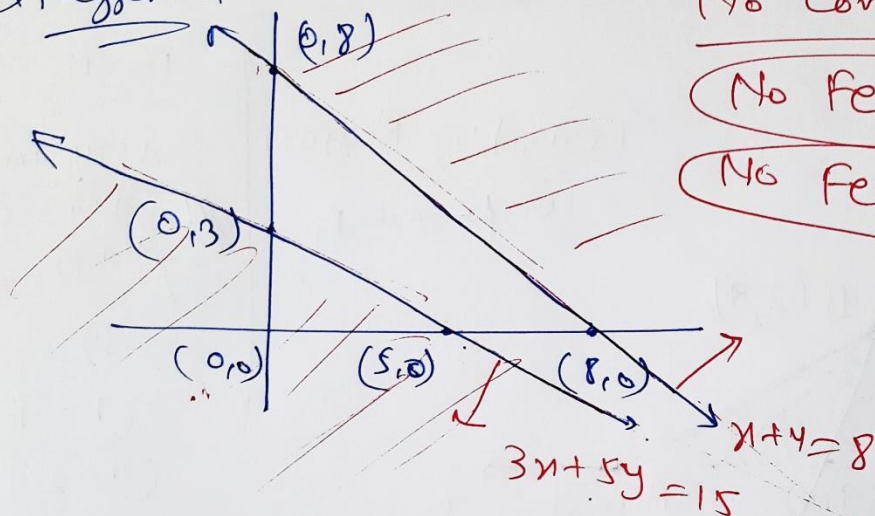 (0,8)
No
No Fe
No Fe
(0,3)
(0,0)
(5,0)
(8,0)
x+y=8
3x+5y=15